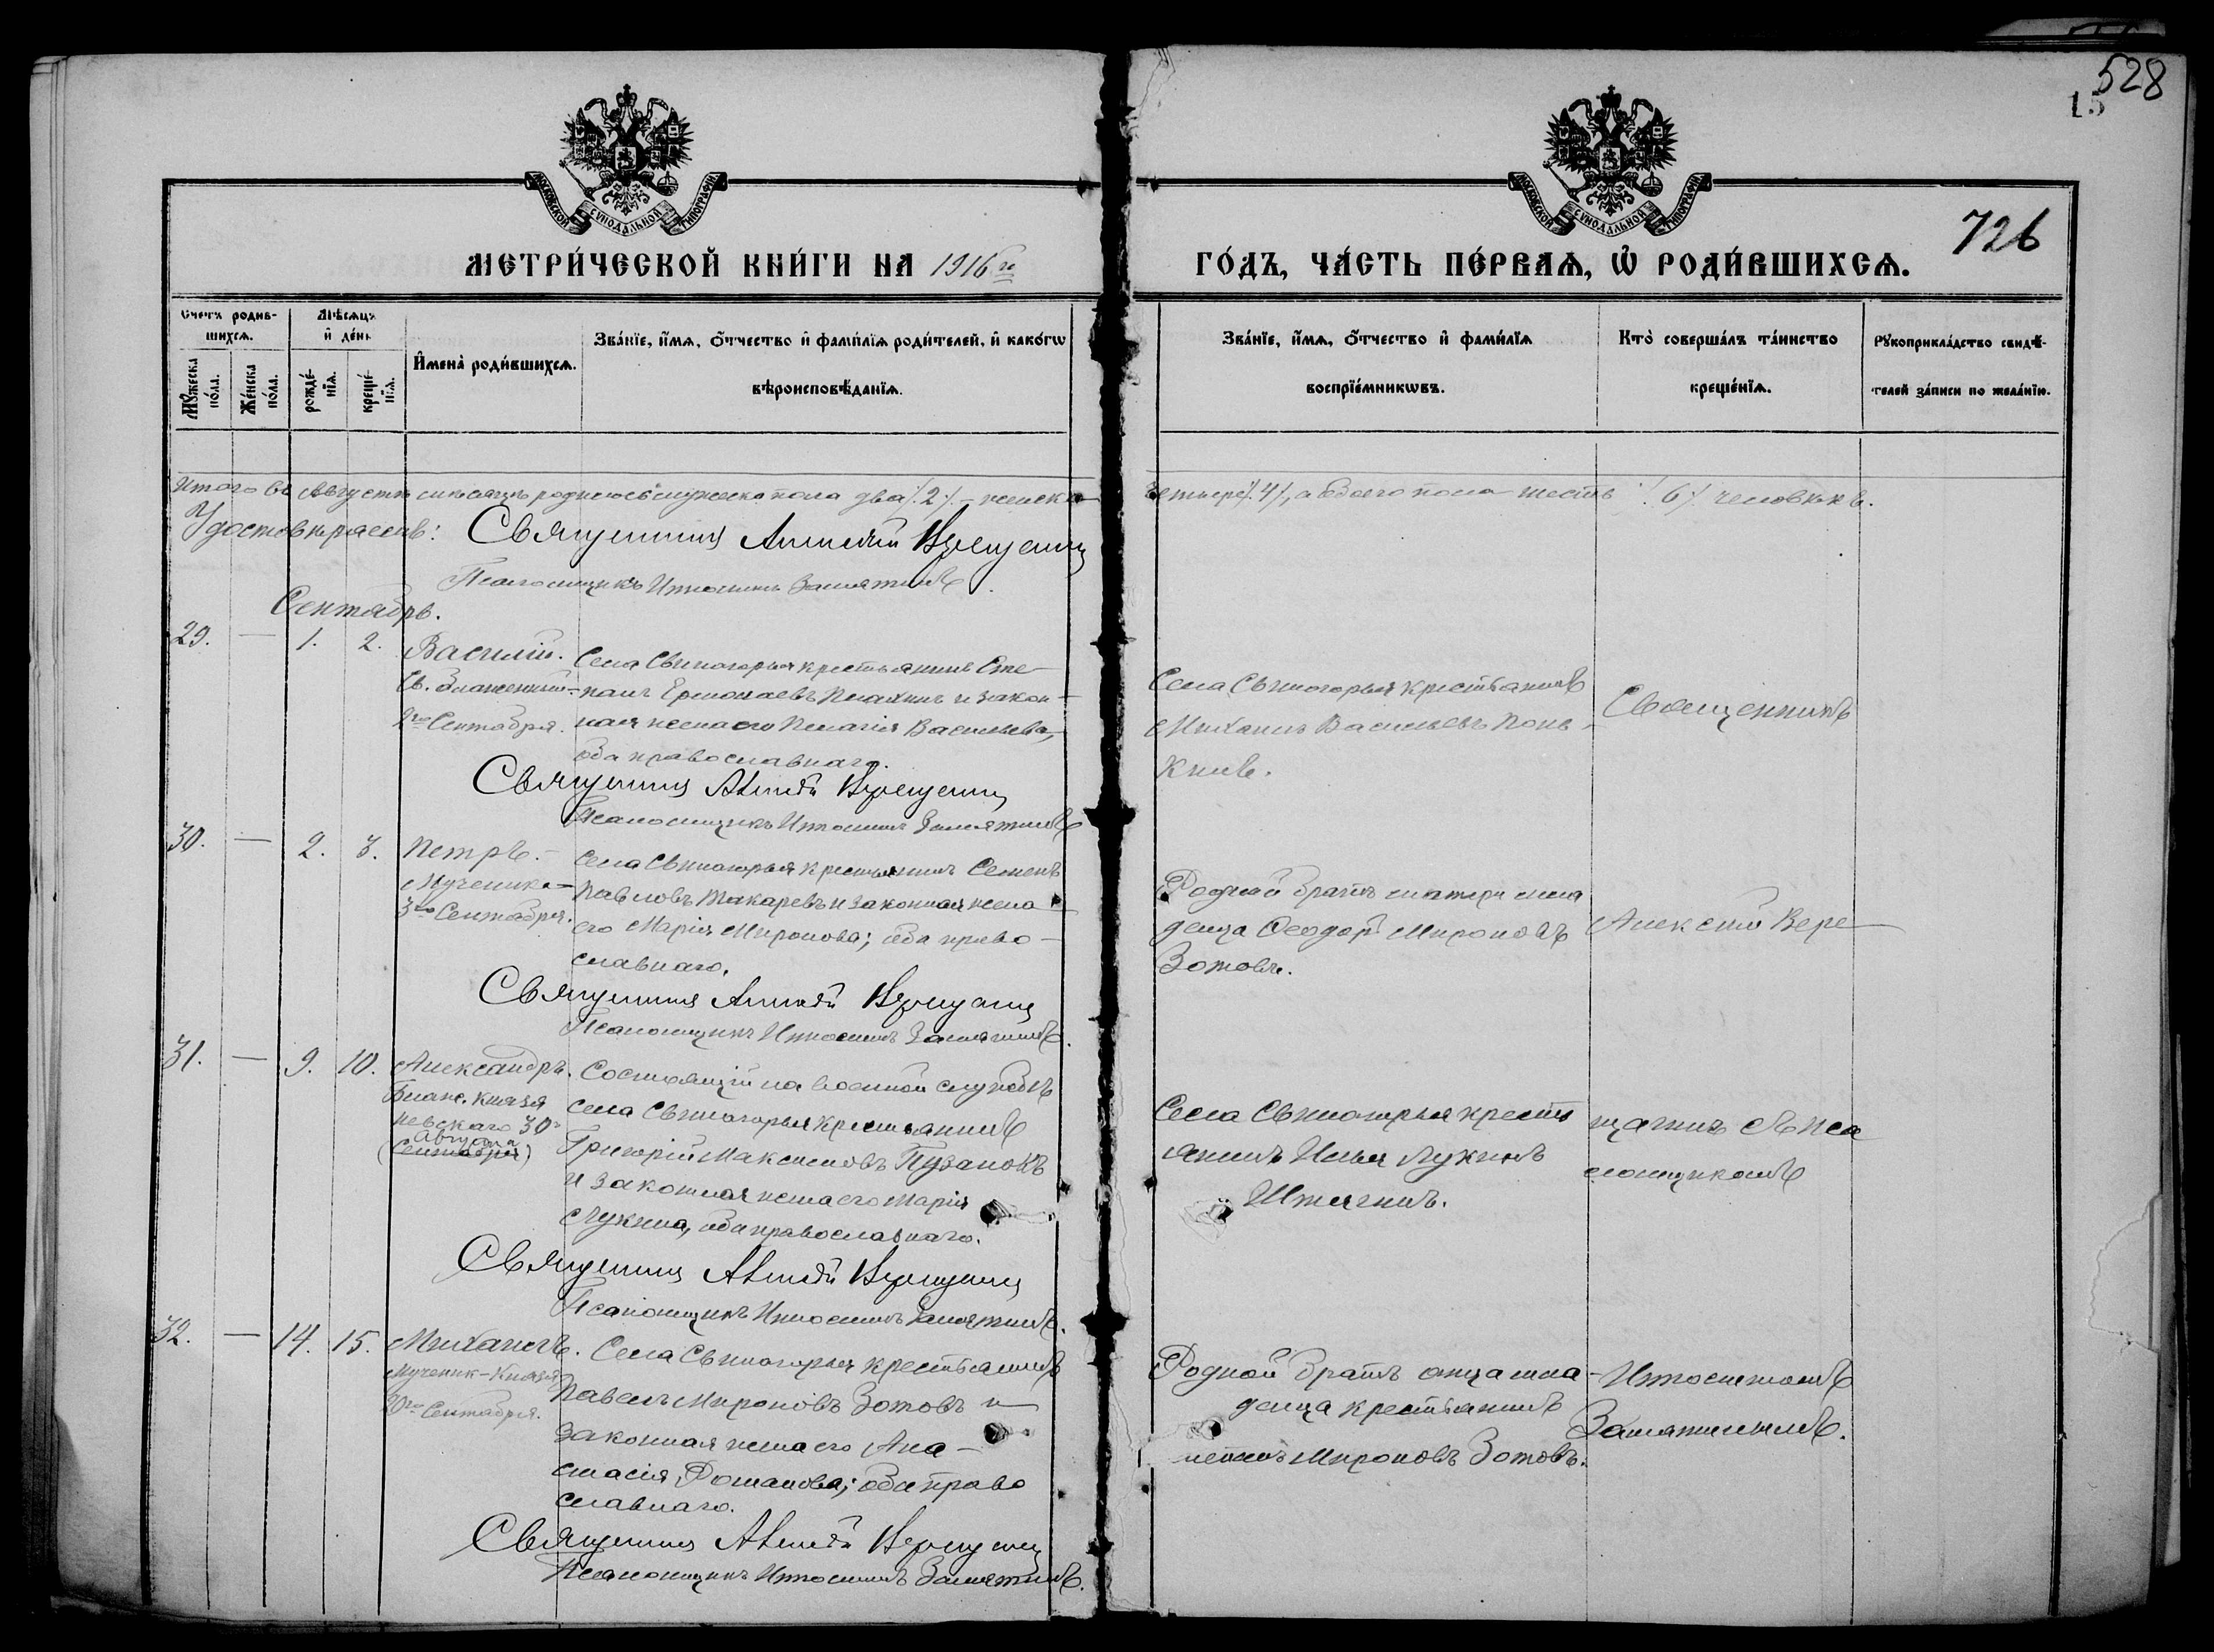 528
15
МОСКОВСКОЙ СУНОДАЛЬНОЙ ТИПОГРАФІИ
МОСКОВСКОЙ СУНОДАЛЬНОЙ ТИПОГРАФІИ
726
МЕТРИ́ЧЕСКОЙ КНИ́ГИ НА 1916 го
ГО́ДЪ, ЧА́СТЬ ПЕ́РВАѦ, Ѡ҆ РОДИ́ВШИХСѦ.
Счетъ родив-
шихсѧ.
Мꙋжеска по́ла.
Же́нска по́ла.
Мѣ́сѧцъ
и҆ де́нь
рожде́-нїѧ.
креще́-нїѧ.
И҆мена̀ роди́вшихсѧ.
Зва́нїе, и҆́мѧ, ѻ҆́тчество и҆ фами́лїѧ роди́телей, и҆ како́гѡ
вѣроисповѣ́данїѧ.
Зва́нїе, и҆́мѧ, ѻ҆́тчество и҆ фами́лїѧ
воспрїе́мникѡвъ.
Кто̀ соверша́лъ та́инство
креще́нїѧ.
Рꙋкоприкла́дство свидѣ́-
телей за́писи по жела́нїю.
Итого въ Августѣ мѣсяцѣ родилось мужеска пола два /2/ – женска
четыре /4/, а обоего пола шесть /6/ человѣкъ.
Удостовѣряемъ: Священникъ Алексѣй Верещагинъ
Псаломщикъ Замятинъ
Сентябрь.
29. — 1. 2. Василій.
Св. блаженный
2го Сентября.
Села Свиногорья крестьянинъ Сте-
панъ Ермолаевъ и закон-
ная жена его Пелагія Васильева,
оба православнаго.
Священникъ Алексѣй Верещагинъ
Псаломщикъ Замятинъ
Села Свиногорья крестьянинъ
Михаилъ Васильевъ Понь-
кинъ.
Священникъ
30. — 2. 3. Петръ.
Мученика
3го Сентября.
Села Свиногорья крестьянинъ Семенъ
Павловъ Макаревъ и законная жена
его Марія Миронова; оба право-
славнаго.
Священникъ Алексѣй Верещагинъ
Псаломщикъ Замятинъ.
Родной братъ матери мла
денца Ѳеодоръ Мироновъ
Зотовъ.
Алексѣй Вере
31. — 9. 10. Александръ.
Благ. Князя
Невскаго 30
Августа
(Сентября)
Состоящій на военной службѣ
села Свиногорья крестьянинъ
Григорій Максимовъ Пузановъ
и законная жена его Марія
Лукина, оба православнаго.
Священникъ Алексѣй Верещагинъ
Псаломщикъ Замятинъ.
Села Свиногорья кресть
янинъ Илья Лукинъ
щагинъ съ Пса
ломщикомъ
32. — 14. 15. Михаилъ.
Мученик-Князя
20го Сентября.
Села Свиногорья крестьянинъ
Павелъ Мироновъ Зотовъ и
законная жена его Ана-
стасія Романова; оба право
славнаго.
Священникъ Алексѣй Верещагинъ
Псаломщикъ Замятинъ.
Родной братъ отца мла-
денца крестьянинъ
Мироновъ Зотовъ.
Замятинымъ.